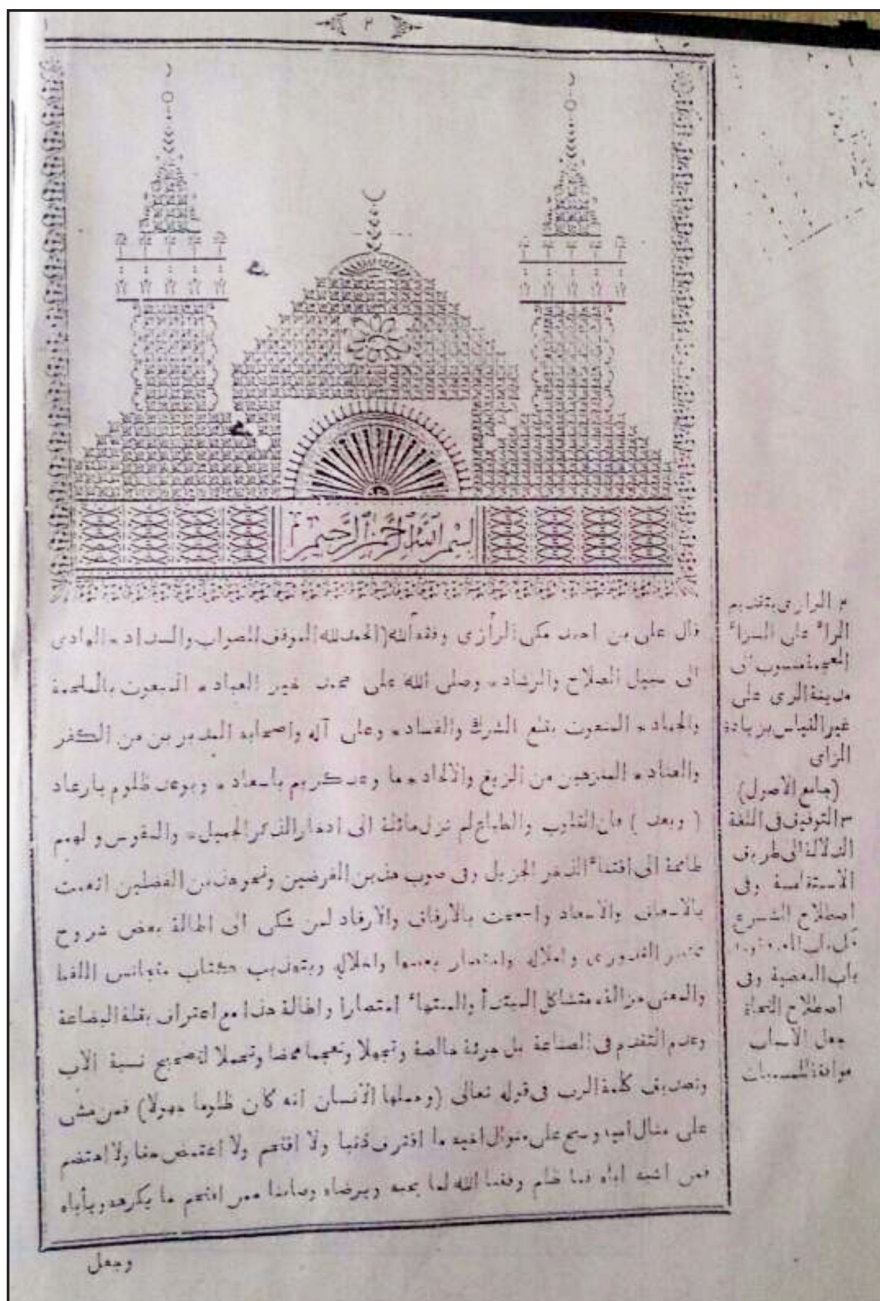 ٢
بسم الله الرحمن الرحيم
قال على بن احمد مكى الرازى وفقه الله (الحمد لله الموفق للصواب والسداد * الهادى
الى سبيل الصلاح والرشاد * وصلى الله على محمد خير العباد * المبعوث بالملحمة
والجهاد * المنعوت بقلع الشرك والفساد * وعلى آله واصحابه المتبرين من الكفر
والعناد * المنزهين من الزيغ والالحاد * ما وعد كريم باسعاد * ويوعد ظلوم بارعاد
(وبعد) فان القلوب والطباع لم تزل مائلة الى ادخار الذكر الجميل * والنفوس ولهم
طامحة الى اقتناء الذخر الجزيل وفى صوب هذين الغرضين ونحو هذين الفضلين انعمت
بالاسعاف والاسعاد والارفاق والارفاد لمن شكى الى اطالة بعض شروح
مختصر القدورى واملاله واختصار بعضها واخلاله وبتهذيب كتاب متجانس اللفظ
والمعنى متشاكل المبتدأ والمنتهاء اختصارا واطالة هذا مع اعتراف بقلة البضاعة
وعدم التقدم فى الصناعة بل جرءة خالصة وتجهلا محضا وتحملا لتصحيح نسبة الأب
وتصديق كلمة الرب فى قوله تعالى (وحملها الأنسان انه كان ظلوما جهولا) فمن مشى
على مثال ابيه ونسج على منوال اخيه ما اقترف ذنبا ولا اقتحم ولا اغتمض حقا ولا اهتضم
فمن اشبه اباه فما ظلم وفقنا الله لما يحبه ويرضاه وصاننا ممن اقتحم ما يكرهه ويأباه
وجعل
٢ الرازى بتقديم
الراء على الزاء
المعجمة منسوب الى
مدينة الرى على
غير القياس بزيادة
الزاى
(جامع الاصول)
٣ التوفيق فى اللغة
الدلالة الى طريق
الاستقامة وفى
اصطلاح الشرع
باب المعصية وفى
اصطلاح النحاة
جعل الأسباب
موافقة للمسببات